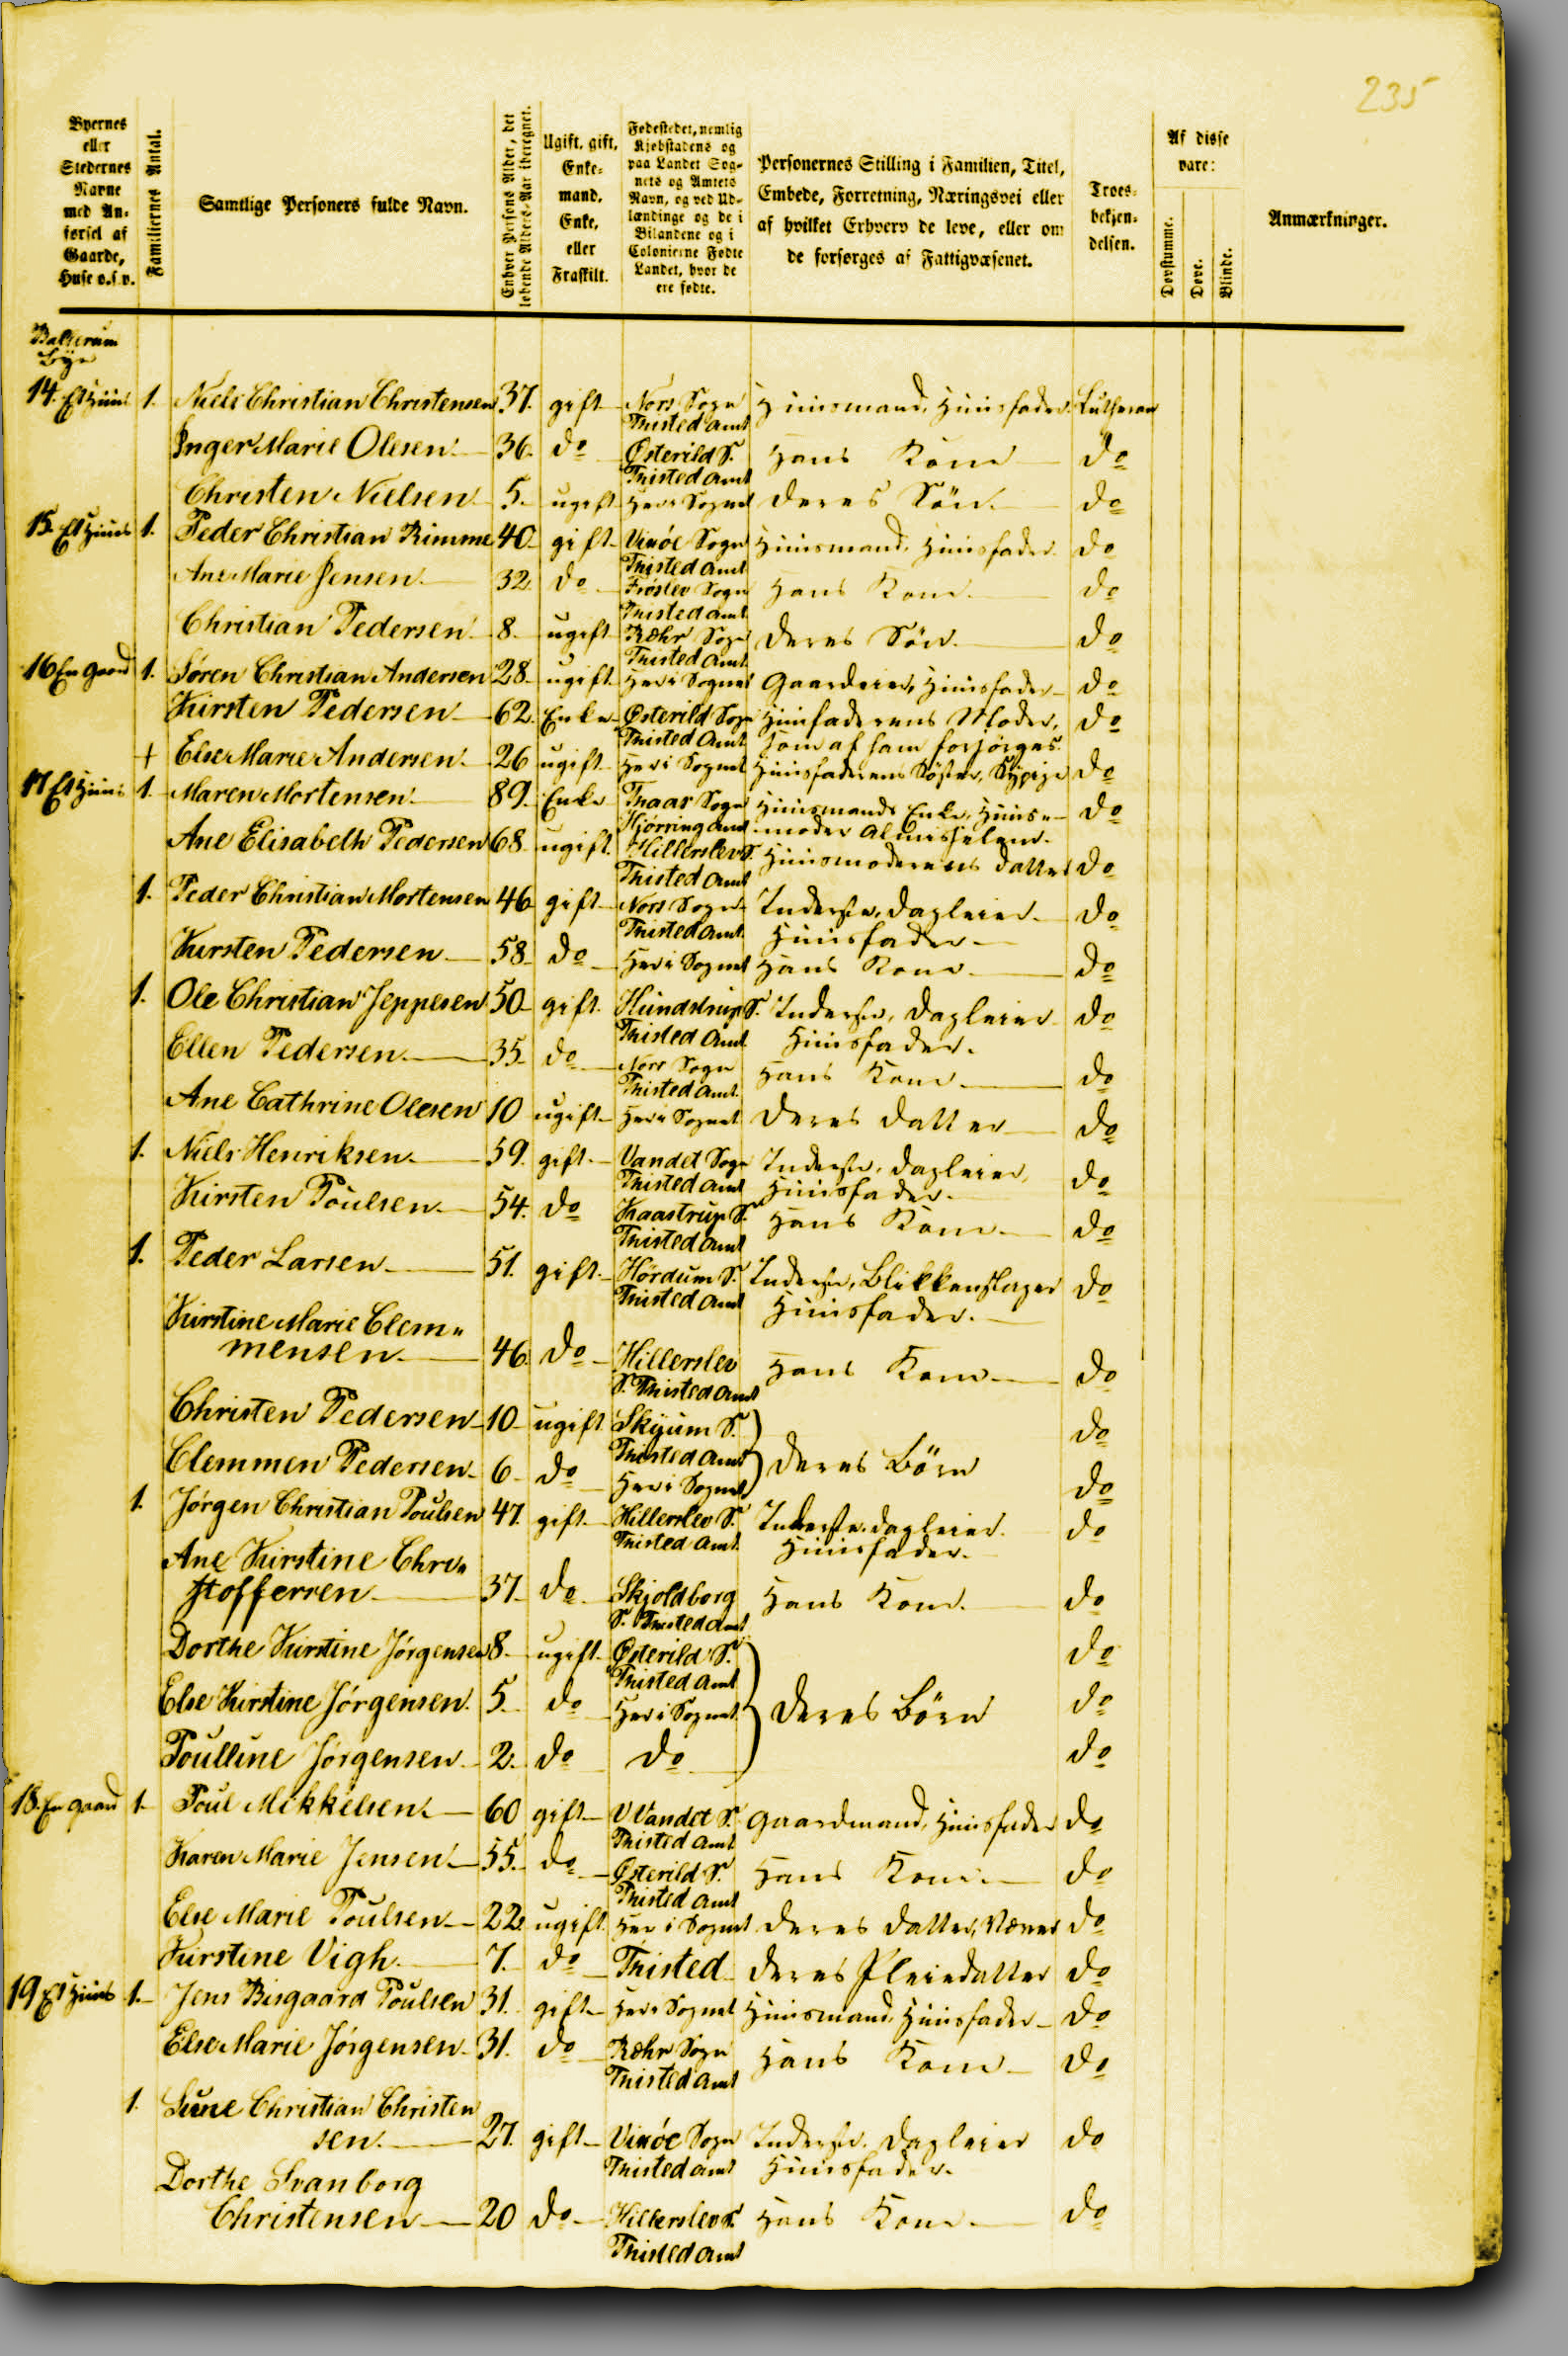 235
Byernes
eller
Stedernes
Navne
med An-
førsel af
Gaarde,
Huse o.s.v.
Familiernes Antal.
Samtlige Personers fulde Navn.
Enhver Persons Alder, det
løbende Alders-Aar iberegnet.
Ugift, gift,
Enke-
mand,
Enke,
eller
Fraskilt.
Fødestedet, nemlig
Kjøbstadens og
paa Landet Sog-
nets og Amtets
Navn, og ved Ud-
lændinge og de i
Bilandene og i
Colonierne Fødte
Landet, hvor de
ere fødte.
Personernes Stilling i Familien, Titel,
Embede, Forretning, Næringsvei eller
af hvilket Erhverv de leve, eller om
de forsørges af Fattigvæsenet.
Troes-
bekjen-
delsen.
Af disse
vare:
Døvstumme.
Døve.
Blinde.
Anmærkninger.
Ballerum
Bye
14. Et Huus 1. Niels Christian Christensen 37. gift Nors Sogn Huusmand, Huusfader. Lutheran
Thisted Amt
Inger Marie Olesen. 36. do Østerild S. Hans Kone do
Thisted Amt
Christen Nielsen 5. ugift Her i Sognet deres Søn. do
15. Et Huus 1. Peder Christian Rimme 40. gift Vixöe Sogn Huusmand, Huusfader. do
Thisted Amt
Ane Marie Jensen. 32. do Frøslev Sogn Hans Kone. do
Thisted Amt
Christian Pedersen 8. ugift Ræhr Sogn deres Søn. do
Thisted Amt.
16 En Gaard 1. Søren Christian Andersen 28. ugift. Her i Sognet Gaardeier, Huusfader do
Kirsten Pedersen 62. Enke Østerild Sogn Huusfaderens Moder, do
Thisted Amt som af ham forsørges.
+ Else Marie Andersen. 26 ugift Her i Sognet Huusfaderens Søster, Sypige do
17 Et Huus 1. Maren Mortensen. 89. Enke Thaar Sogn Huusmands Enke, Huus- do
Hjørring Amt moder Almisselem.
Ane Elisabeth Pedersen 68. ugift. Hillerslev S. Huusmoderens datter do
Thisted Amt
1. Peder Christian Mortensen 46 gift Nors Sogn Inderste, dagleier. do
Thisted Amt. Huusfader
Kirsten Pedersen 58. do Her i Sognet Hans Kone do
1. Ole Christian Jeppesen 50 gift. Hundstrup S. Inderste, dagleier do
Thisted Amt Huusfader.
Ellen Pedersen. 35. do Nors Sogn Hans Kone do
Thisted Amt.
Ane Cathrine Olesen 10 ugift Her i Sognet deres datter do
1. Niels Henriksen. 59. gift. Vandet Sogn Inderste, dagleier, do
Thisted Amt Huusfader.
Kirsten Poulsen. 54. do Kaastrup S. Hans Kone do
Thisted Amt
1. Peder Larsen 51. gift. Hördum S. Inderste, Blikkenslager do
Thisted Amt Huusfader.
Kirstine Marie Clem„
mensen. 46. do Hillerslev Hans Kone do
S. Thisted Amt
Christen Pedersen 10 ugift Skyum S. do
Thisted Amt deres Börn
Clemmen Pedersen. 6 do Her i Sognet do
1. Jørgen Christian Poulsen 47. gift. Hillerslev S. Inderste, dagleier. do
Thisted Amt. Huusfader.
Ane Kirstine Chri„
stoffersen. 37. do Skjoldborg Hans Kone. do
S. Thisted Amt
Dorthe Kirstine Jørgensen 8. ugift. Østerild S. do
Thisted Amt
Else Kirstine Jørgensen. 5. do Her i Sognet deres Börn do
Poulline Jørgensen. 2. do do do
18. En Gaard 1. Poul Mikkelsen. 60 gift V Vandet S. Gaardmand, Huusfader do
Thisted Amt
Karen Marie Jensen. 55. do Østerild S. Hans Kone. do
Thisted Amt
Else Marie Poulsen 22. ugift. Her i Sognet deres datter, do
Kirstine Vigh. 7. do Thisted deres Pleiedatter do
19 Et Huus 1. Jens Bisgaard Poulsen 31. gift Her i Sognet Huusmand, Huusfader do
Else Marie Jørgensen. 31. do Ræhr Sogn Hans Kone do
Thisted Amt
1. Christian Christen
sen. 27. gift Vixöe Sogn Inderste. Dagleier do
Thisted Amt Huusfader.
Dorthe Svanborg
Christensen 20 do Hillerslev S. Hans Kone do
Thisted Amt